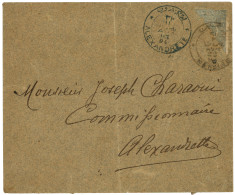 ALEXANDRETTE
Monsieur Joseph Charaoui
Commissionnaire
Alexandrette